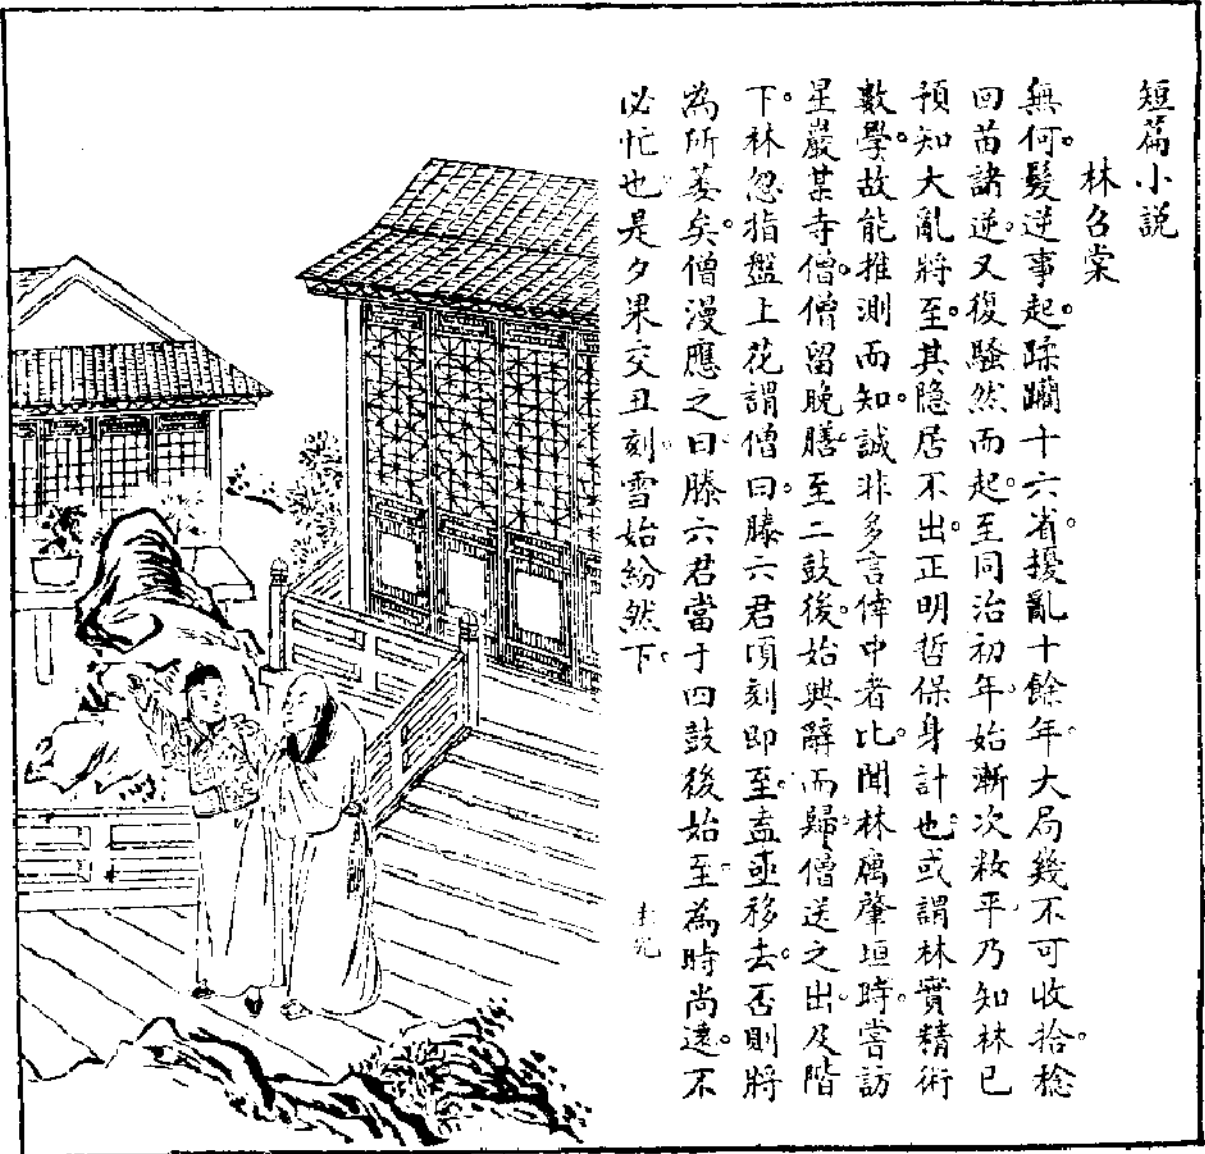 短篇小説
林召棠
無何。髮逆事起。蹂躪十六省。擾亂十餘年。大局幾不可收拾。捻
回苗諸逆。又復騷然而起。至同治初年。始漸次敉平。乃知林已
預知大亂將至。其隐居不出。正明哲保身計也。或謂林實精術
數學。故能推測而知。誠非多言偉中者比。聞林寓肇垣時。嘗訪
星巖某寺僧。僧留晚膳。至二鼓後。始興辭而歸。僧送之出。及階
下。林忽指盤上花謂僧曰。滕六君頃刻即至。盍亟移去。否則將
為所萎矣。僧漫應之曰。滕六君當于四鼓後始至。為時尚遠。不
必忙也。是夕果交丑刻。雪始紛然下。